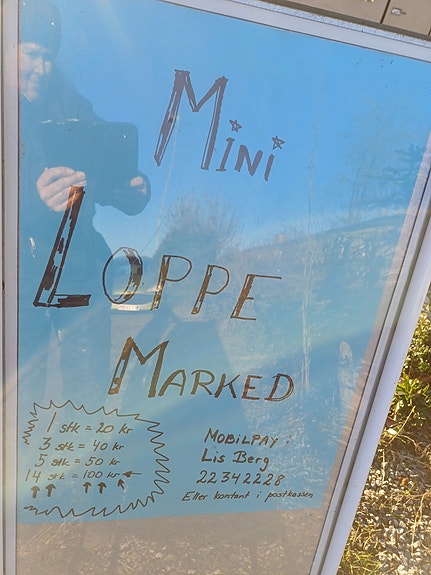 MiNi
LOPPE
MARKED
1 stk = 20 kr
3 stk = 40 kr
5 stk = 50 kr
14 stk = 100 kr
MOBILPAY:
Lis Berg
22342228
Eller kontant i postkassen